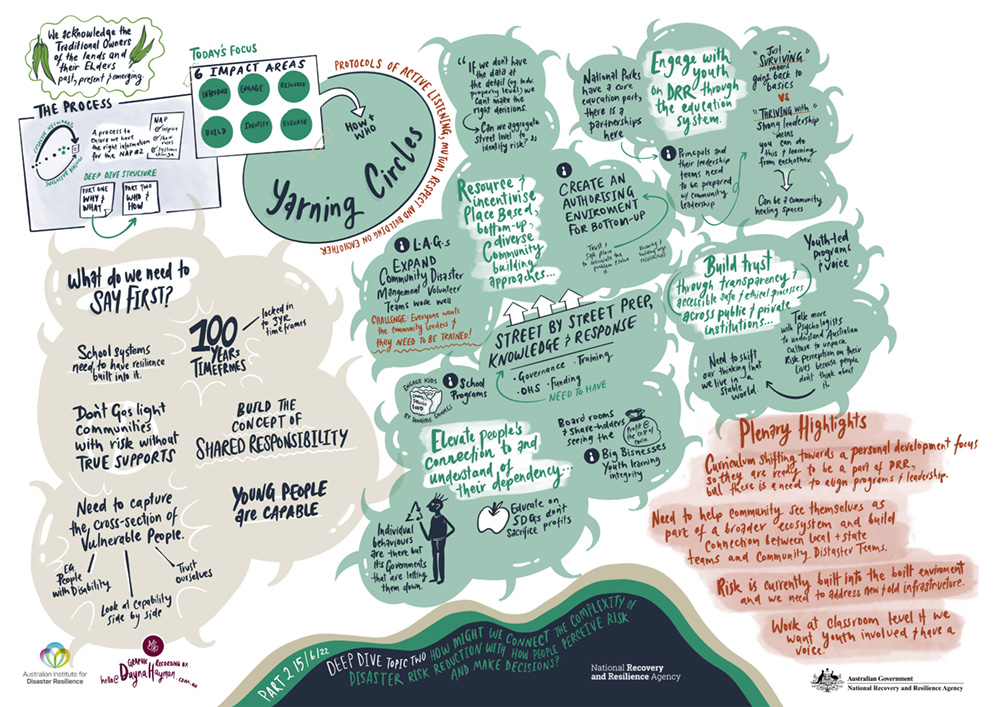 We acknowledge the
Traditional Owners
of the lands and
their Elders
past, present & emerging.
THE PROCESS
CREATIVE NETWORKS
INCLUSIVE DIALOG
A process to
ensure we have
the right information
for the NAP #2
NAP
DEEP DIVE STRUCTURE
PART ONE
WHY &
WHAT
PART TWO
WHO &
HOW
TODAY'S FOCUS
6 IMPACT AREAS
INTRODUCE
ENGAGE
RESOURCE
BUILD
IDENTIFY
ELEVATE
HOW +
WHO
Yarning
Circles
PROTOCOLS OF ACTIVE LISTENING, MUTUAL RESPECT AND BUILDING ON EACHOTHER
What do we need to
SAY FIRST?
School systems
need to have resilience
built into it.
100
YEARS
TIMEFRMES
locked in
to 3YR
timeframes
Don't Gas light
Communities
with risk without
TRUE SUPPORTS
BUILD THE
CONCEPT OF
SHARED RESPONSIBILITY
Need to capture
the cross-section of
Vulnerable People.
EG
People
with Disability
Look at Capability
side by side
Trust
ourselves
YOUNG PEOPLE
are CAPABLE
"If we don't have
the data at
the detail (eg indv.
property levels) we
can't make the
right decisions.
Can we aggregate
street level to
identify risk?"
Resource &
incentivise
Place Based,
bottom-up,
diverse
Community
building
approaches...
L.A.G.s
EXPAND
Community Disaster
Mangement Volunteer
Teams work well
CHALLENGE: Everyone wants
the community leaders &
they NEED TO BE TRAINED!
CREATE AN
AUTHORISING
ENVIROMENT
FOR BOTTOM-UP
Trust &
Safe place
to articulate the
problem & solve
it
STREET BY STREET PREP,
KNOWLEDGE & RESPONSE
• Governance • Training
• OHS • Funding
NEED TO HAVE
National Parks
have a core
education part,
there is a
partnerships
here
Engage with
youth
on DRR through
the education
system.
Principals and
their leadership
teams need
to be prepared
w/ community
leadership
"Just
SURVIVING"
means
going back to
basics
VS
"THRIVING with"
strong leadership
means
you can
do this
& learning
from eachother
Can be a community
healing spaces
Build trust
through transparency, &
accessible safe & ethical processes
across public & private
institutions...
Youth-led
programs
& voice
Talk more
with Psychologists
to understand Australian
Culture to unpack
Risk perception on their
lives because people
don't think about
it.
Need to shift
our thinking that
we live in a
stable
world.
ENGAGE KIDS
School
Programs
Elevate people's
connection to and
understand of
their dependency...
Board rooms
& share-holders
seeing the
Profit @
the cost of
Big Bisnesses
Youth learning
integrity
Individual
behaviours
are there but
it's Governments
that are letting
them down.
Educate on
SDGs don't
Sacrifice profits
Plenary Highlights
Curriculum shifting towards a personal development focus
so they are ready to be a part of DRR,
but there is a need to align programs & leadership.
Need to help community see themselves as
part of a broader ecosystem and build
connection between local + state
teams and Community Distaster Teams.
Risk is currently built into the built enviroment
and we need to address new & old infrastructure.
Work at classroom level if we
want youth involved & have a
voice.
PART 2 15/6/22
DEEP DIVE TOPIC TWO HOW MIGHT WE CONNECT THE COMPLEXITY OF
DISASTER RISK REDUCTION WITH HOW PEOPLE PERCEIVE RISK
AND MAKE DECISIONS?
National Recovery
and Resilience Agency
Australian Institute for
Disaster Resilience
GRAPHIC RECORDING BY
hello@DaynaHayman.com.au
Australian Government
National Recovery and Resilience Agency